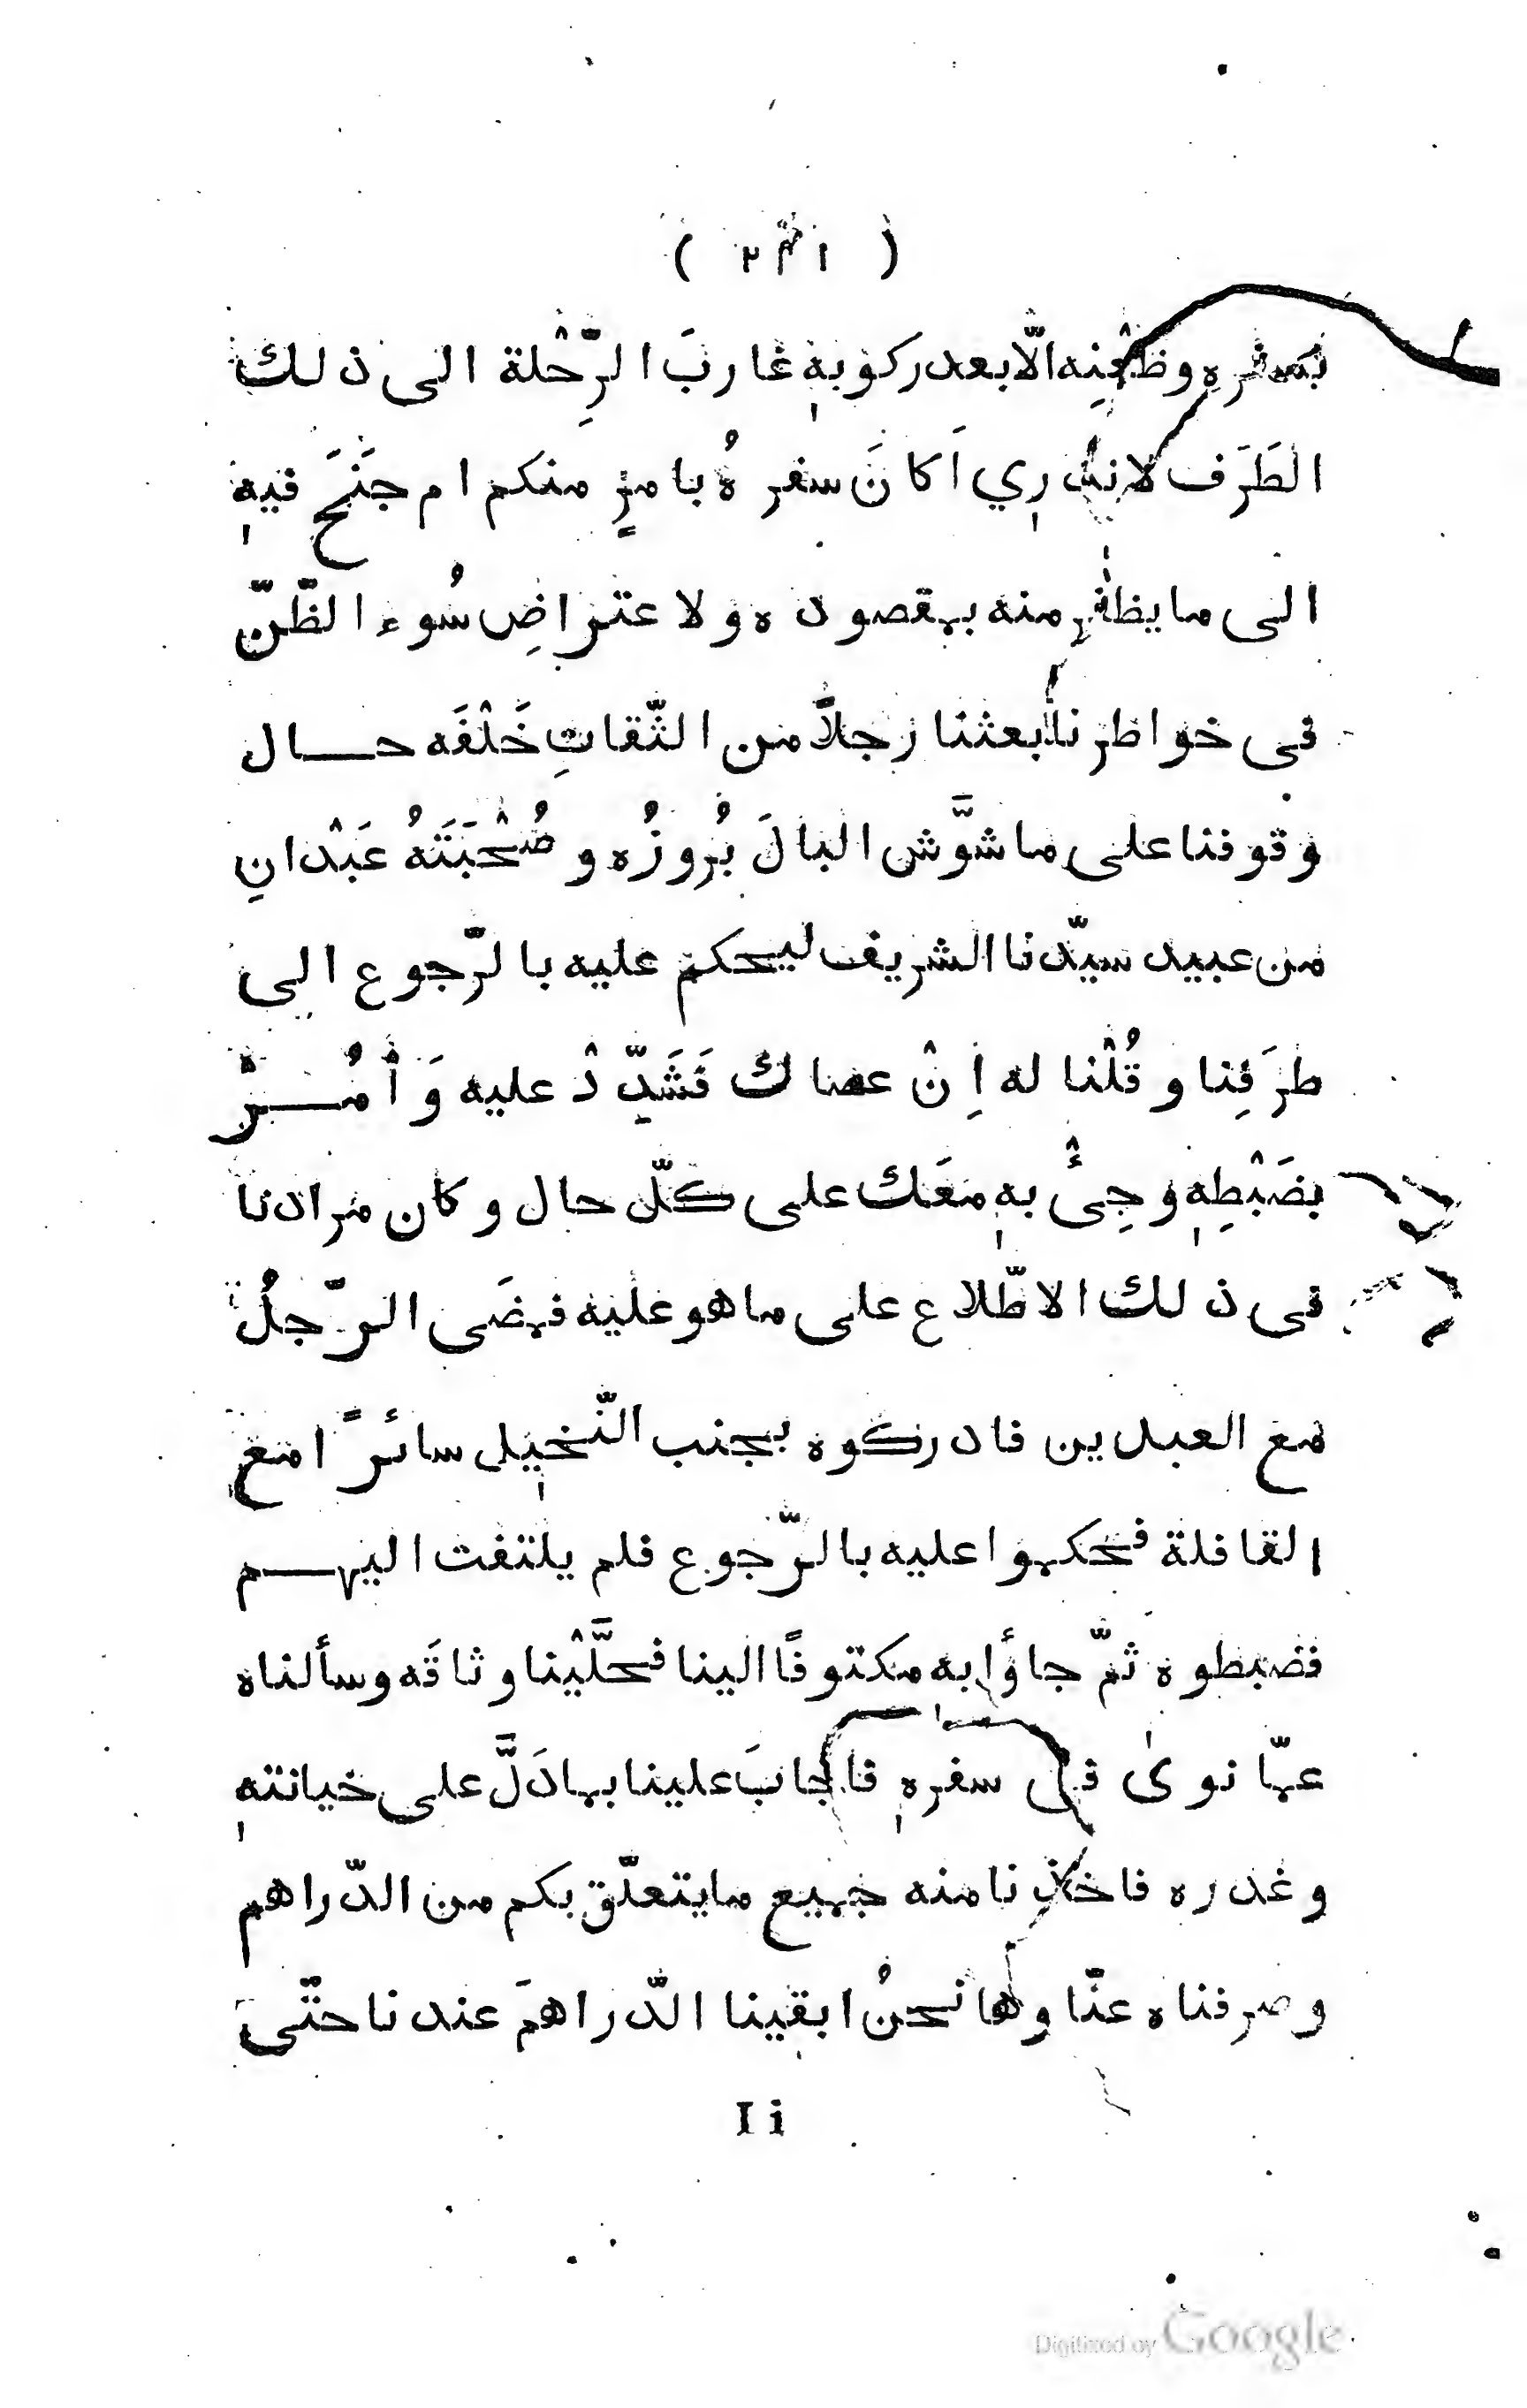 ( ٢٤١ )
بسفرهِ وظَعْنِه الّا بعد ركوبهٖ غاربَ الرِّحْلة الى ذلك
الطَرَف لاندري اَكانَ سفرهُ بامرٍ منكم ام جَنَحَ فيهٖ
الى ما يظفر منه بمقصوده ولاعتراضِ سُوء الظّنّ
فى خواطرنا بعثنا رجلاً من الثّقاتِ خَلْفَه حال
وقوفنا على ما شوَّش البالَ بُروزُه وصُحْبَتَهُ عَبْدانِ
من عبيد سيّدنا الشريف ليحكم عليه بالرّجوع الى
طرَفِنا وقُلْنا له اِنْ عصاك فَشَدِّدْ عليه وَأْمُرْ
بضَبْطِهٖ وجِئْ بهٖ معَك على كلّ حال وكان مرادنا
فى ذلك الاطّلاع على ما هو عليه فمضَى الرّجلُ
مع العبدين فادركوه بجنب النّخيل سائرًا مع
القافلة فحكموا عليه بالرّجوع فلم يلتفت اليهم
فضبطوه ثمّ جاؤا به مكتوفًا الينا فحلَّيْنا وثاقَه وسألناه
عمّا نوىٰ فى سفرهٖ فاجابَ علينا بمادَلَّ على خيانتهٖ
وغدره فاخذنا منه جميع ما يتعلّق بكم من الدّراهم
وصرفناه عنّا وها نحنُ ابقينا الدّراهمَ عندنا حتّى
I i
Digitized by Google